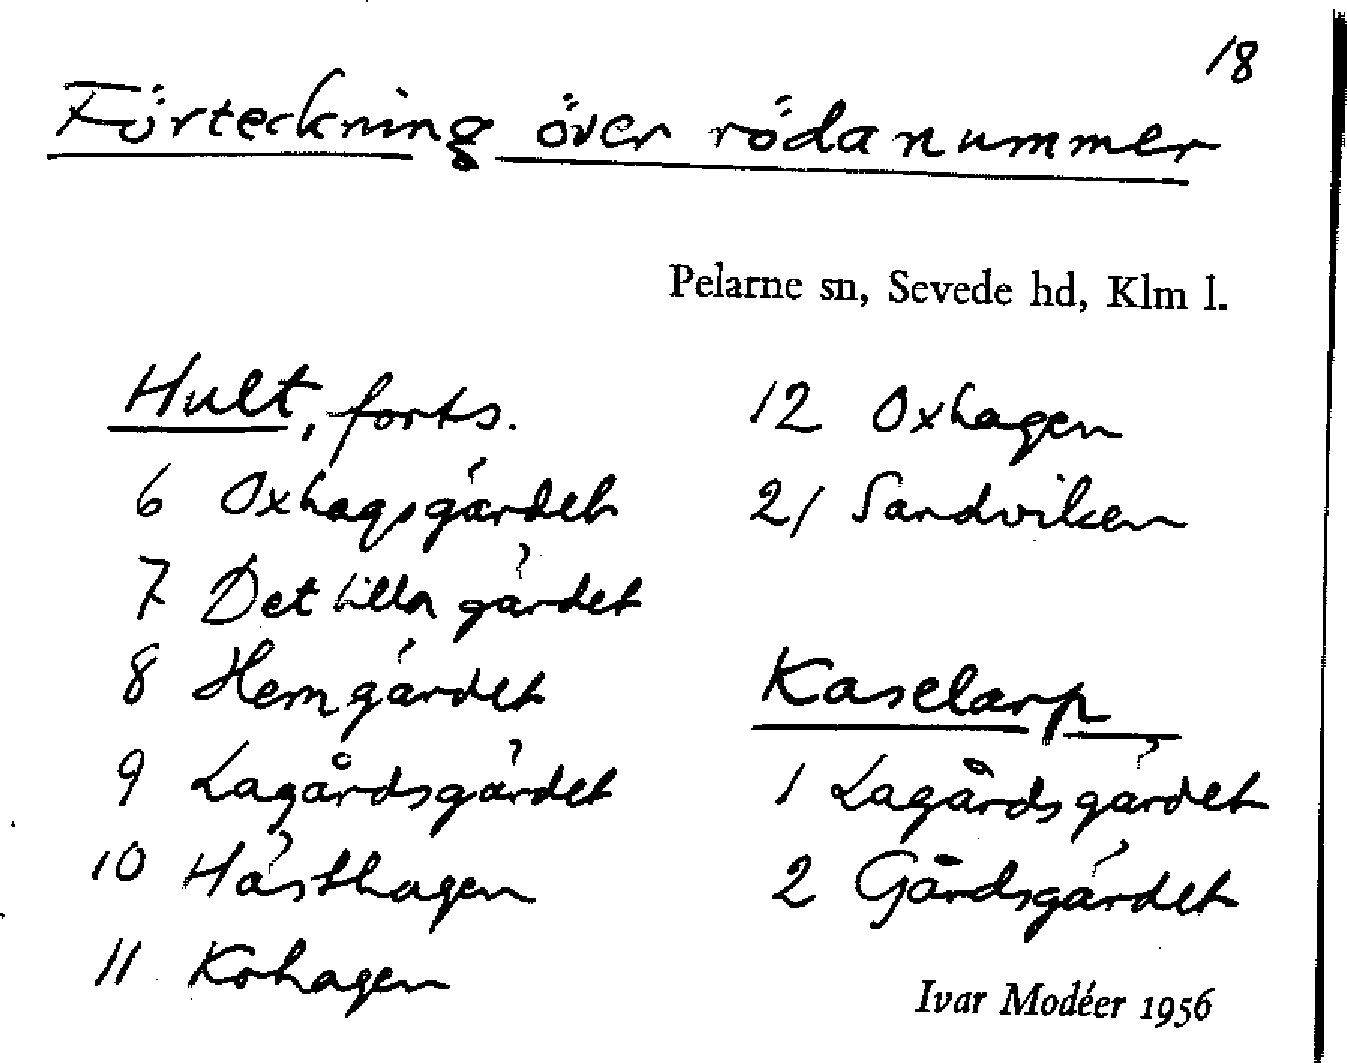 18
Förteckning över röda nummer
Pelarne sn, Sevede hd, Klm l.
Hult, forts.
6 Oxhagsgärdet
7 Det lilla gärdet
8 Hemgärdet
9 Lagårdsgärdet
10 Hästhagen
11 Kohagen
12 Oxhagen
21 Sandviken
Kaselarp
1 Lagårdsgärdet
2 Gårdsgärdet
Ivar Modéer 1956